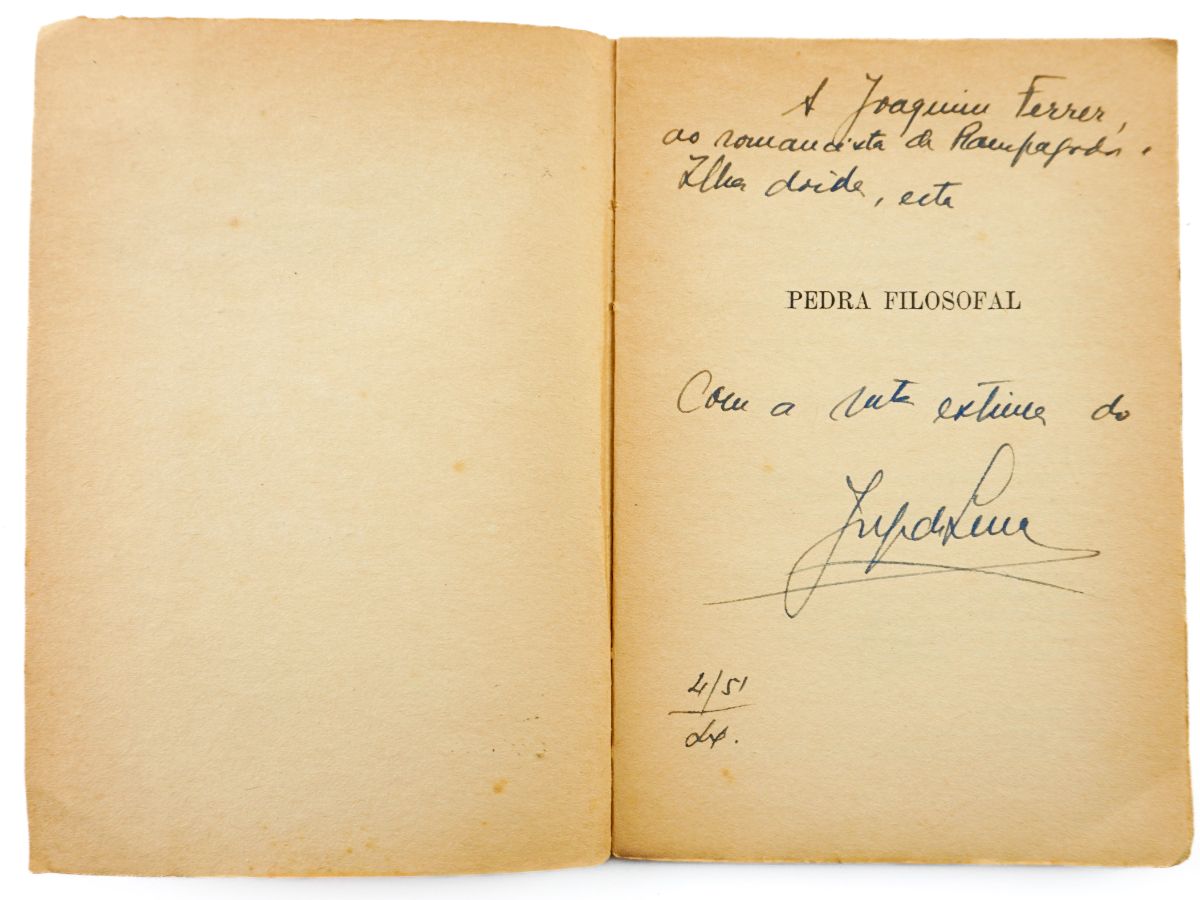 A Joaquim Ferrer,
ao romancista de Rampagodos e
Ilha doida, esta
PEDRA FILOSOFAL
Com a muita estima do
Jorge de Sena
4/51
Lx.